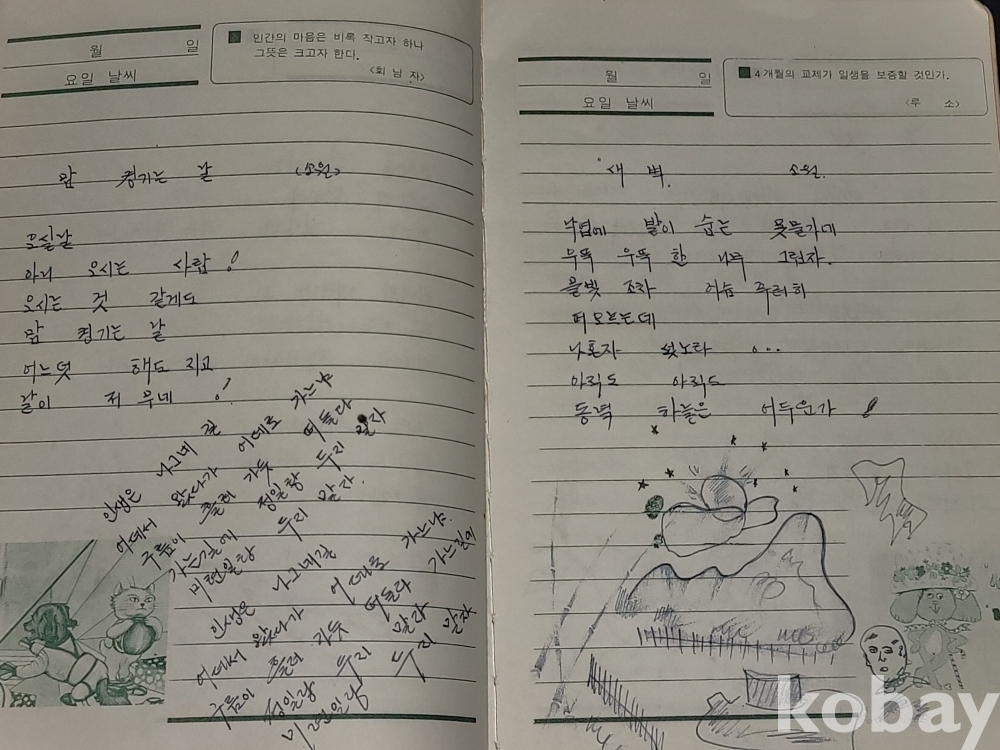 월 일
요일 날씨
민간의 마음은 비록 작고자 하나
그뜻은 크고자 한다.
<회 남 자>
맘 켱기는 날 (소월)
오실날
아니 오시는 사람!
오시는 것 같게도
맘 켱기는 날
어느덧 해도 지고
날이 저 무네!
인생은 나그네 길
어데서 왔다가 어데로 가느냐
구름이 흘러 가듯 떠돌다
가는길에 정일랑 두리 말자
미련일랑 두리 말자.
인생은 나그네길
어데서 왔다가 어데로 가느냐.
구름이 흘러 가듯 떠돌다 가는길에
정일랑 두리 말자
미련일랑 두리 말자
월 일
요일 날씨
4개월의 교제가 일생을 보증할 것인가.
<루 소>
새 벽. 소월.
낙엽에 발이 숨는 못물가에
우뚝 우뚝 한 나무 그림자.
물빛 조차 어슴 푸러히
떠오르는데
나혼자 섯노라 ...
아직도 아직도
동녘 하늘은 어두운가!
kobay